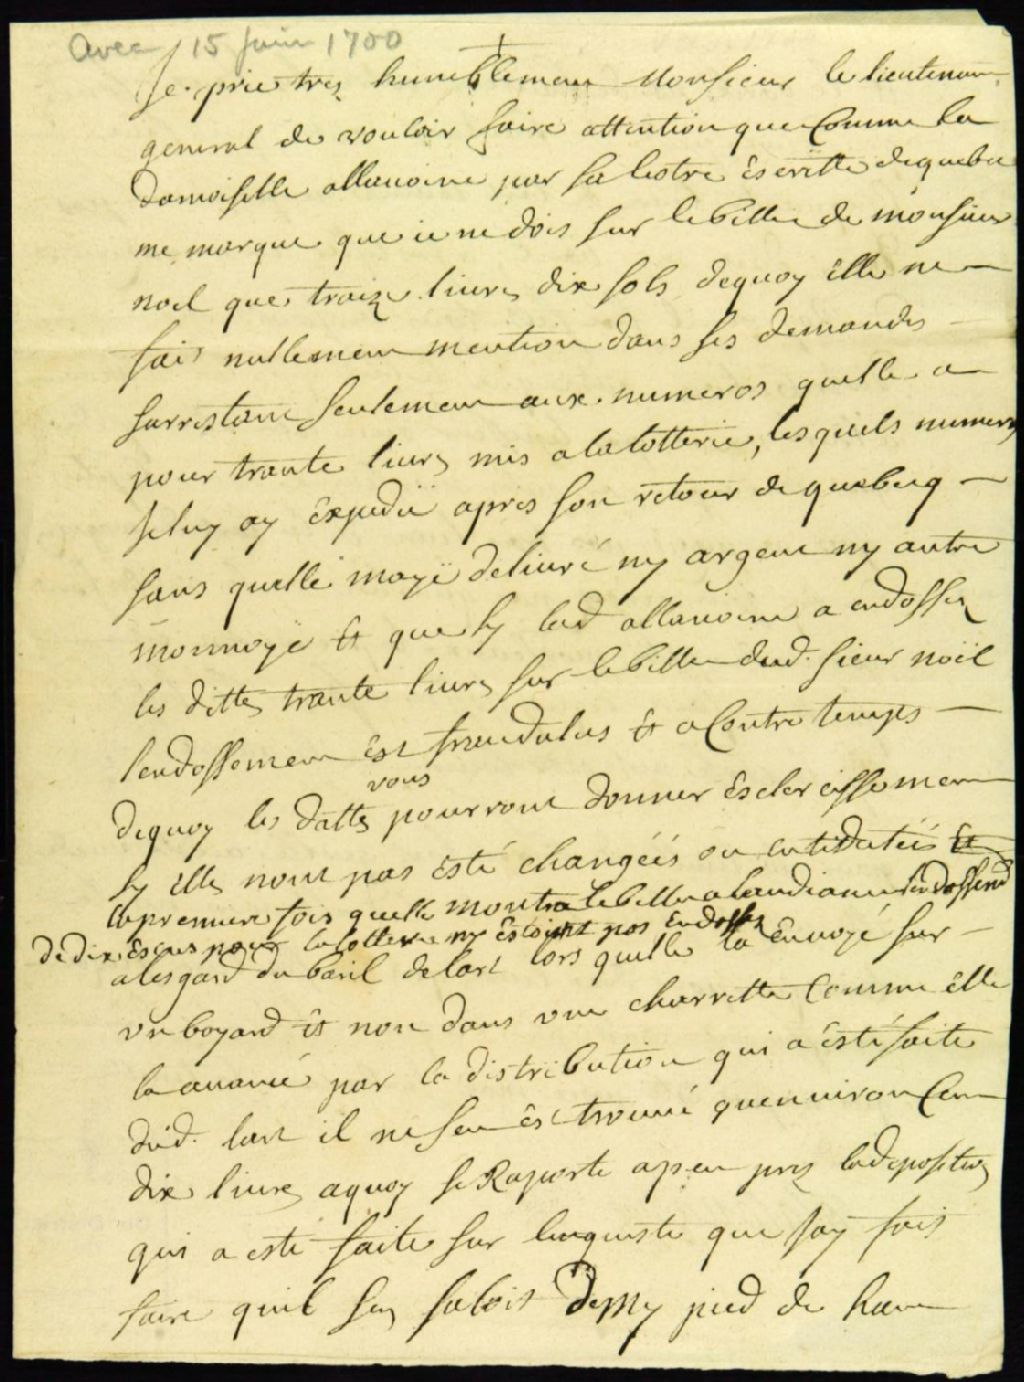 avec 15 Juin 1700
Je prie tres humblement Monsieur le lieutenan
general de vouloir faire attention que Comme la
damoiselle allavoine par sa lettre escritte dequebe
me marque que je ne dois sur le billet de monsieur
noel que traize livres dix sols dequoy elle ne
fait nullement mention dans ses demandes
sarrestant seulement aux numeros quelle a
pour trante livres mis a la lotterie, lesquels numeros
je luy ay expedié apres son retour de quebecq
sans quelle mayë delivré ny argent ny autre
monnoye et que sy lad allavoine a endossez
les dittes trante livres sur le billet dud. sieur noël
lendossement est fraudulus et a Contre temps
dequoy les dattes vous pourront donner esclercissement
sy elles nont pas esté changéés ou antidatéés et
la premiere fois quelle montra le billet a landossemt
de dix escus pour la lotterie ny estoint pas Endossez
a lesgard du baril de lart lors quelle la Envoyé sur
un boyard et non dans une charrette Comme elle
la avancé par la distribution qui a esté faite
dud. lart il ne sen est trouvé quenviron Cent
dix livres aquoy se Raporte a peu pres la deposition
qui a esté faite sur lenqueste que jay fait
faire quil sen faloit demy pied de haut